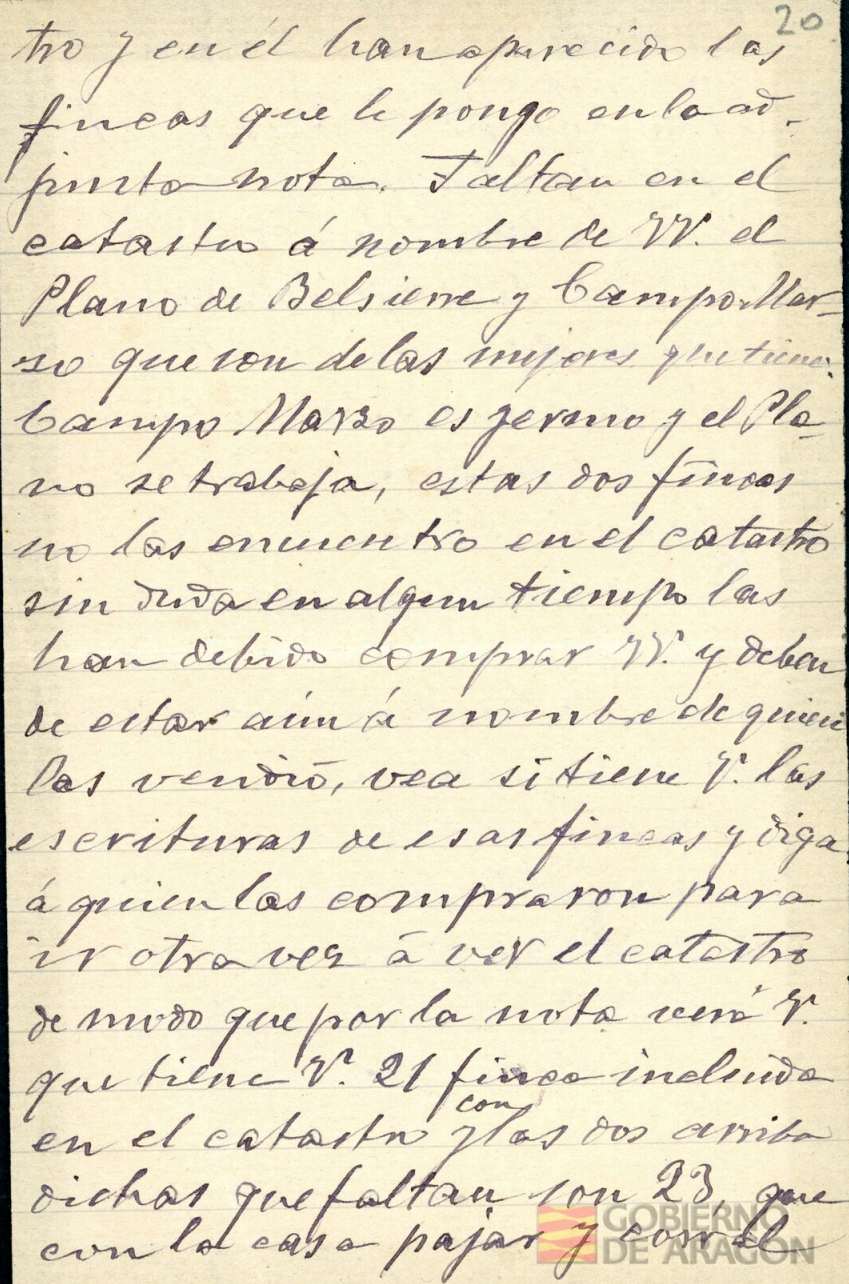 20
tro y en él han aparecido las
fincas que le pongo en la ad-
junta nota. Faltan en el
catastro á nombre de VV. el
Plano de Belsierre y Campo Mar-
zo que son de las mejores que tiene.
Campo Marzo es yermo y el Pla-
no se trabaja, estas dos fincas
no las encuentro en el catastro
sin duda en algun tiempo las
han debido comprar VV. y deben
de estar aún á nombre de quien
las vendió, vea si tiene V. las
escrituras de esas fincas y diga
á quien las compraron para
ir otra vez á ver el catastro
de modo que por la nota verá V.
que tiene V. 21 finca incluida
en el catastro y con las dos arriba
dichas que faltan son 23, que
con la casa pajar y corral
GOBIERNO
DE ARAGON